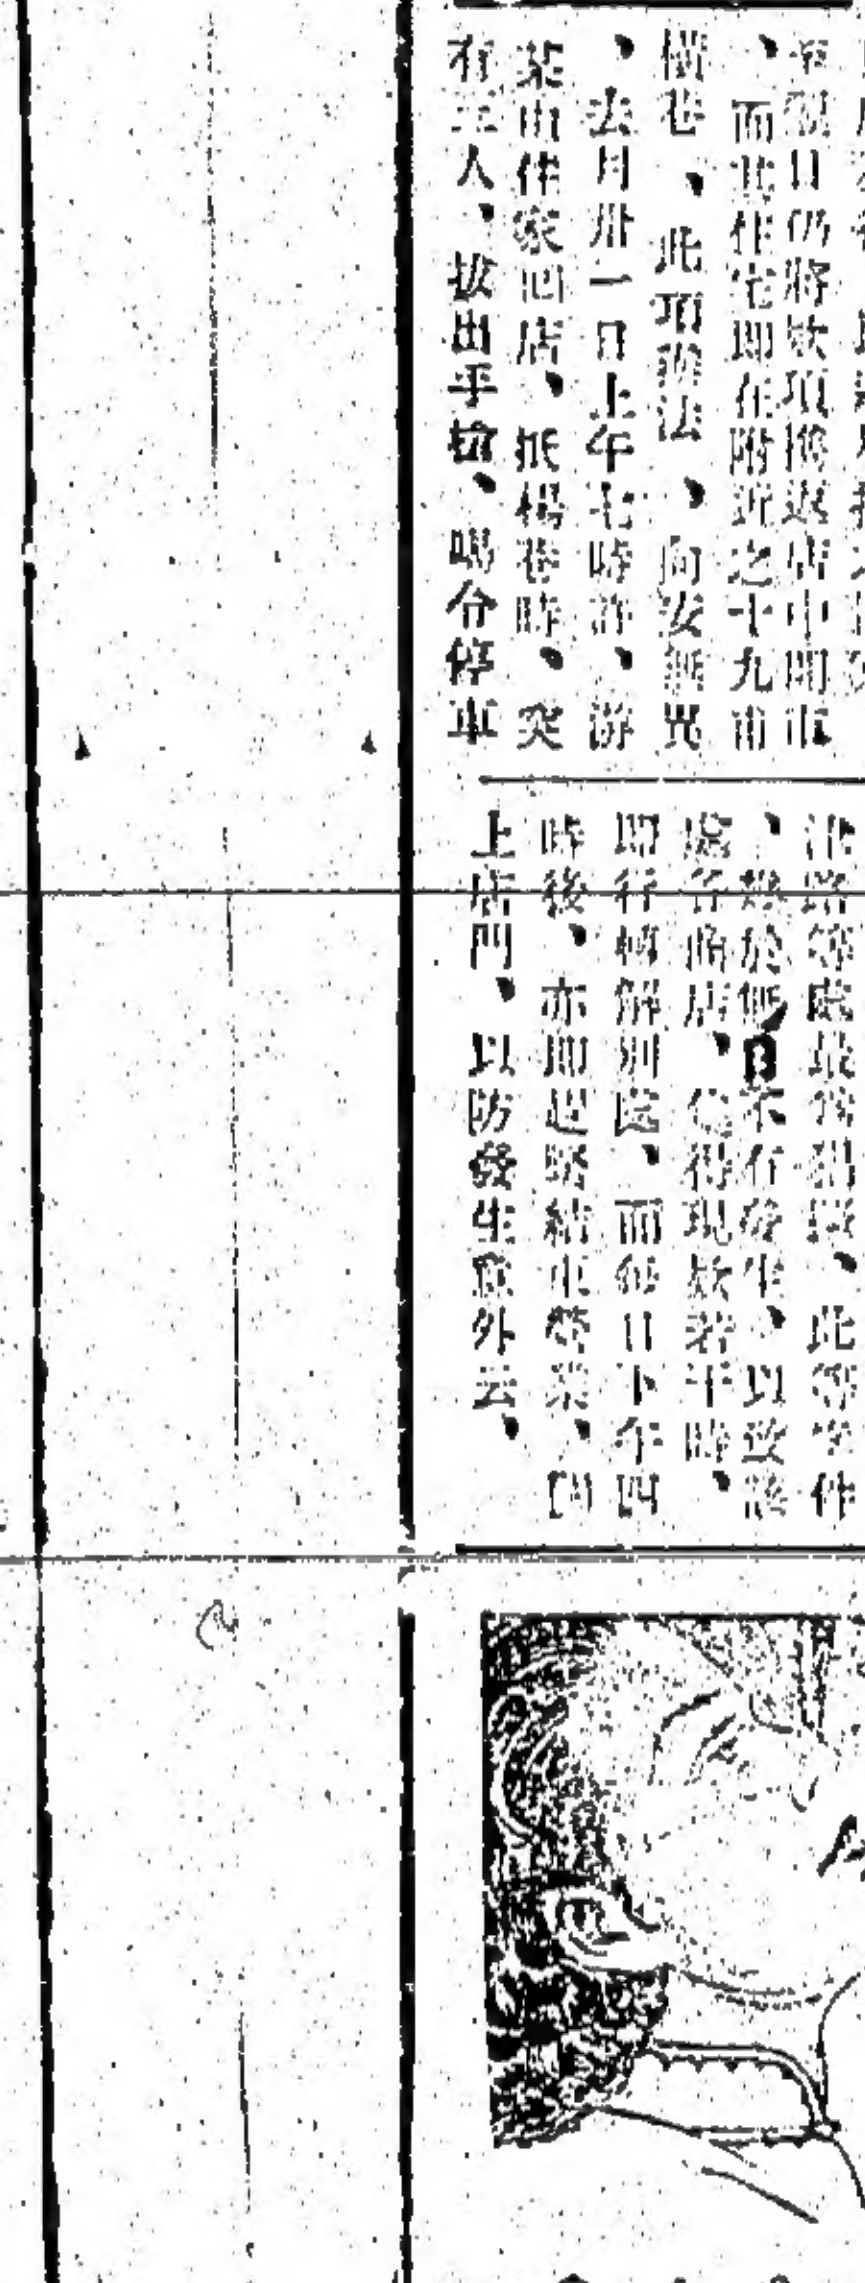 翌日仍將款項携返店中開市
、而其住宅即在附近之十九甫
橫巷、此項辦法、向安無異
、去月卅一日上午七時許、游
某由住家回店、抵楊巷時、突
有三人、拔出手槍、喝令停車
准路等處最爲猖獗、此等案件
、幾於無日不有發生、以致該
處各商店、倘得現款若干時、
即行轉解別處、而每日下午四
時後、亦即趕緊結束營業、閂
上店門、以防發生意外云、